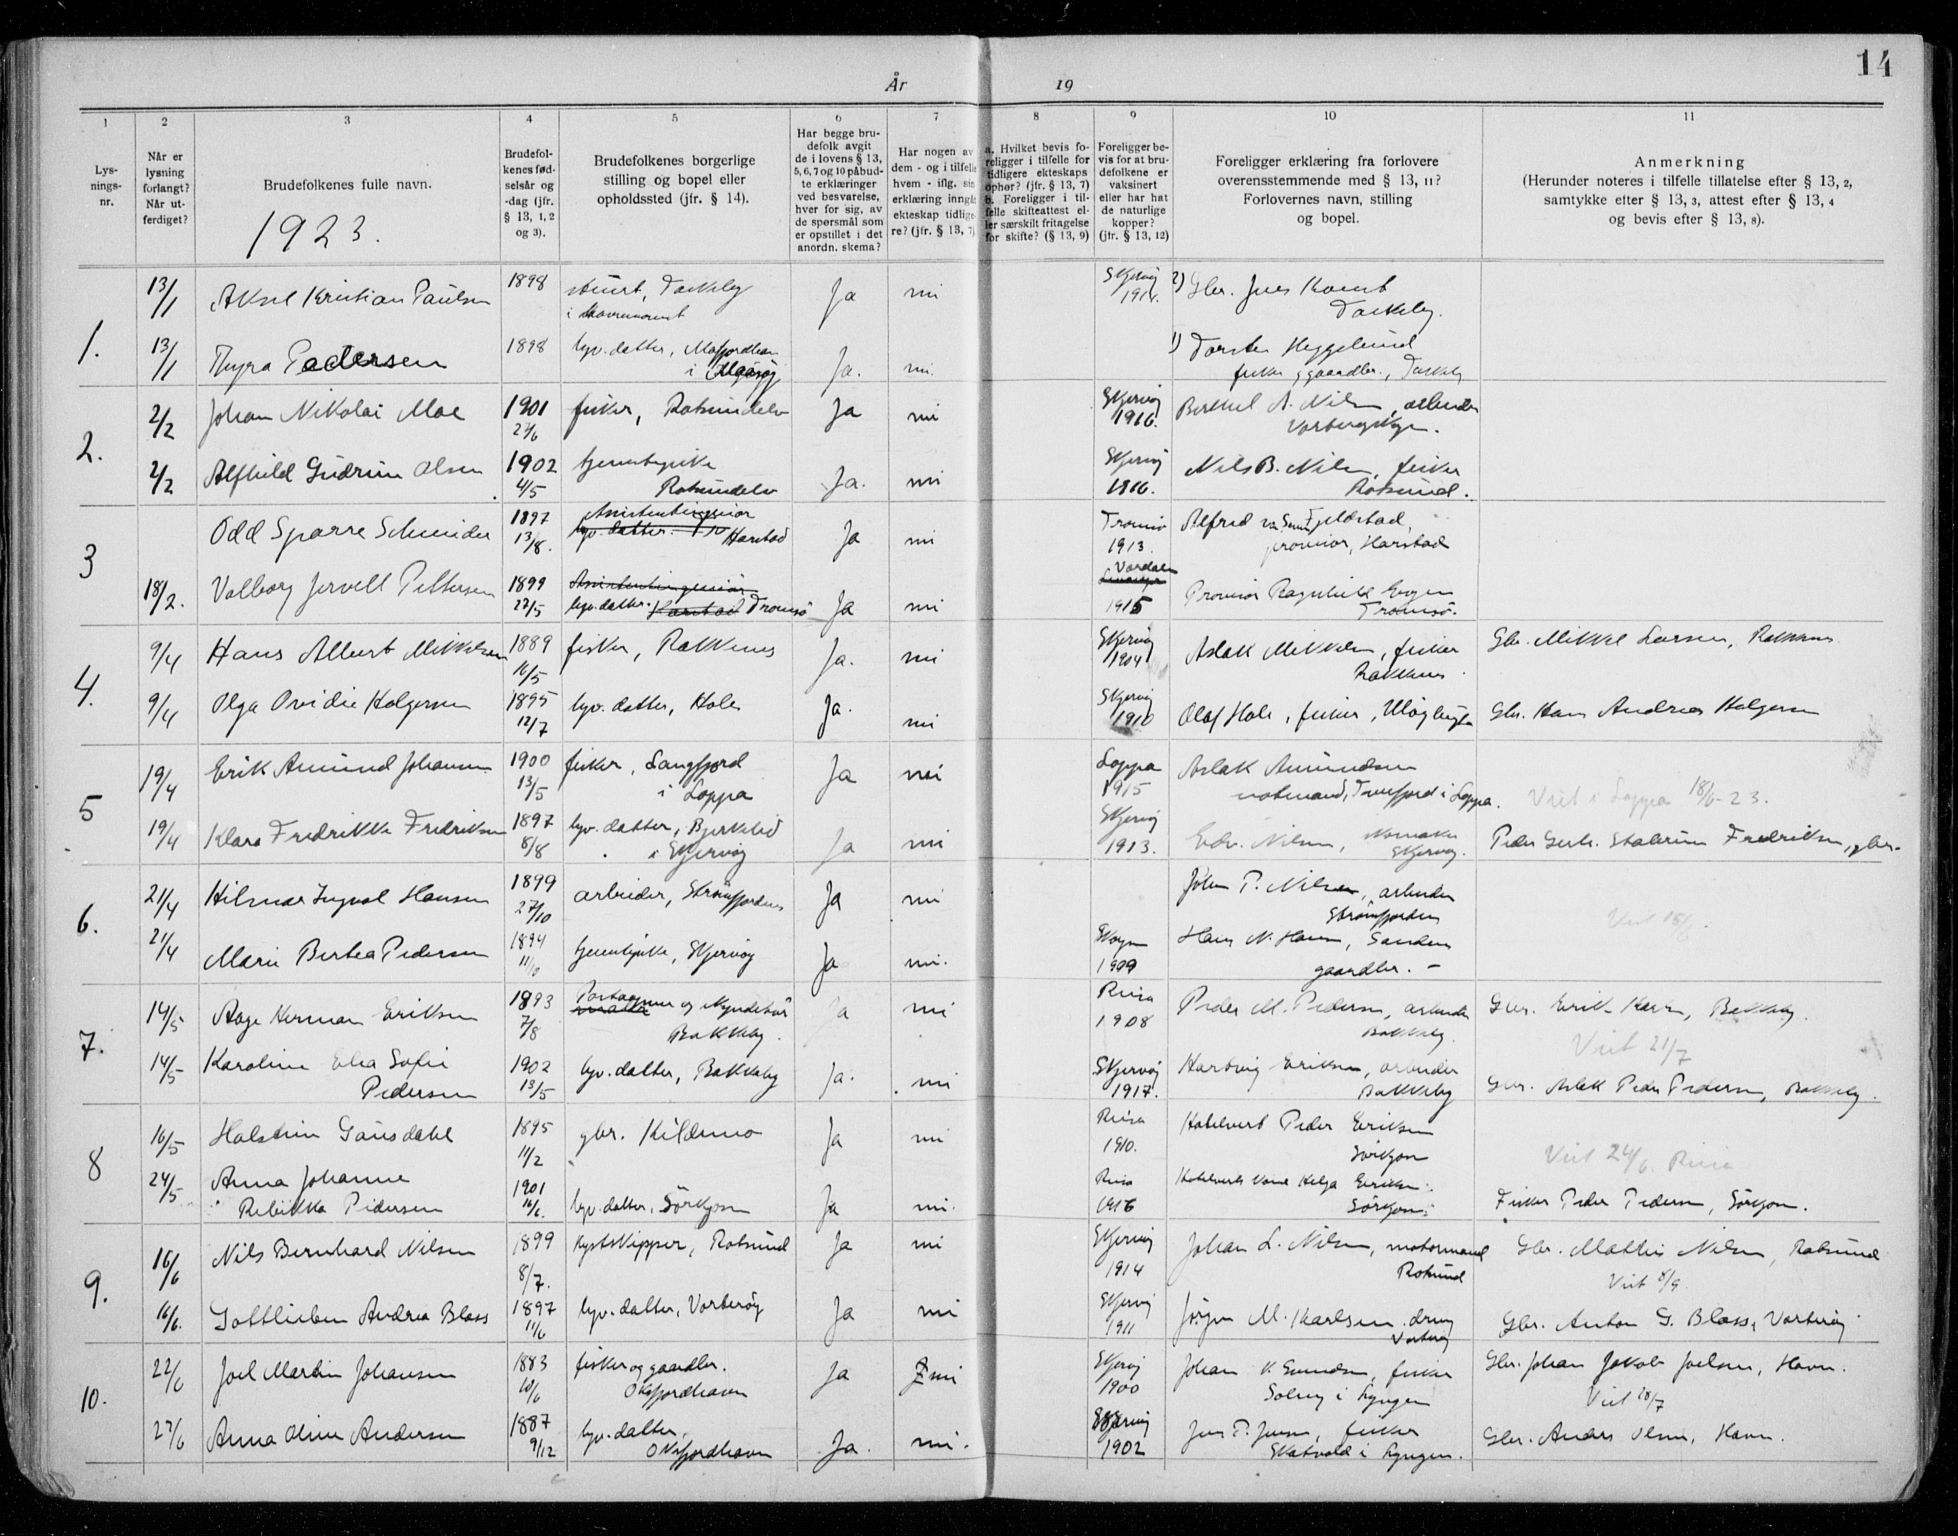 14
År 19
1 2 3 4 5 6 7 8 9 10 11
Lys-
nings-
nr.
Når er
lysning
forlangt?
Når ut-
ferdiget?
Brudefolkenes fulle navn.
1923.
Brudefol-
kenes fød-
selsår og
-dag (jfr.
§ 13, 1, 2
og 3).
Brudefolkenes borgerlige
stilling og bopel eller
opholdssted (jfr. § 14).
Har begge bru-
defolk avgit
de i lovens § 13,
5, 6, 7 og 10 påbud-
te erklæringer
ved besvarelse,
hver for sig, av
de spørsmål som
er opstillet i det
anordn. skema?
Har nogen av
dem - og i tilfelle
hvem - iflg. sin
erklæring inngåt
ekteskap tidlige-
re? (jfr. § 13, 7)
a. Hvilket bevis fo-
religger i tilfelle for
tidligere ekteskaps
ophør? (jfr. § 13, 7)
b. Foreligger i til-
felle skifteattest el-
ler særskilt fritagelse
for skifte? (§ 13, 9)
Foreligger be-
vis for at bru-
defolkene er
vaksinert
eller har hat
de naturlige
kopper?
(jfr. § 13, 12)
Foreligger erklæring fra forlovere
overensstemmende med § 13, 11?
Forlovernes navn, stilling
og bopel.
Anmerkning
(Herunder noteres i tilfelle tillatelse efter § 13, 2,
samtykke efter § 13, 3, attest efter § 13, 4
og bevis efter § 13, 8).
1.
13/1 Aksel Kristian Paulsen 1898 Ja Skjervøy 1914. 2) Gbr. Jens
13/1 Thyra Pedersen 1898 hjv. datter, Ja. 1) Torsten Heggelund
2.
2/2 Johan Nikolai Moe 1901 fisker, Rotsundelv Ja Skjervøy 1916. Berthel A. Nilsen, arbeider
2/2 Alfhild Gudrun Olsen 1902 4/5 tjenestepike Rotsundelv Ja. Skjervøy 1916. Nils B. Nilsen, fisker Rotsund.
3
Odd Sparre Schneider 1897 13/8. Assistentingeniør hjv. datter. Harstad Ja Tromsø 1913. Alfred Fjeldstad, provisor, Harstad
18/2. Valborg Jervell Pettersen 1899 22/5 Assistentingeniør hjv. datter. Harstad Tromsø Ja 1915 Provisor Ragnhild Tromsø.
4.
9/4 Hans Albert Mikkelsen 1889 16/5 fisker, Rakkenes Ja. Skjervøy 1904 Aslak Mikkelsen, fisker Rakkenes. Gbr. Mikkel Larsen, Rakkenes
9/4 Olga Ovidie Holgersen 1895 12/7 hjv. datter, Ja. Skjervøy 1910 Olaf Hole, fisker, Gbr. Hans Andreas Holgersen
5
19/4 Erik Amund Johansen 1900 13/5 fisker, Langfjord i Loppa Ja nei Loppa 1915 Aslak Amundsen i Loppa. Viet i Loppa 18/6-23.
19/4 Klara Fredrikke Fredriksen 1897 8/8 hjv. datter, i Skjervøy Ja Skjervøy 1913. Edv. Nilsen, Skjervøy. Peder Fredriksen, gbr.
6.
21/4 Hilmar Ingval Hansen 1899 27/10 arbeider, Straumfjorden Ja Johan P. Nilsen, arbeider Straumfjorden
21/4 Marie Berbea Pedersen 1894 11/10 tjenestepike, Skjervøy Ja 1909 Hans N. Hansen, gaardbr.
7.
14/5 Aage Herman Eriksen 1893 7/8 Bakkeby. Ja Reisa 1908 Peder M. Pedersen, arbeider Bakkeby. Gbr. Erik Bakkeby.
Viet 21/7
14/5 Karoline Elea Sofie Pedersen 1902 13/5 hjv. datter, Bakkeby Ja. Skjervøy 1917. Hartvig Eriksen, arbeider Bakkeby Gbr. Aslak Peder Pedersen, Bakkeby.
8
16/5 Halstein Gausdahl 1895 11/2 gbr. Kildemo Ja Reisa 1910. Hotelvert Peder Eriksen Sørkjosen Viet 24/6. Reisa
24/5 Anna Johanne Rebekka Pedersen 1901 16/6. hjv. datter, Sørkjosen Ja Reisa 1916 Helga Eriksen Sørkjosen Fisker Peder Pedersen, Sørkjosen.
9.
16/6 Nils Bernhard Nilsen 1899 8/7. kystskipper, Rotsund Ja Skjervøy 1914 Johan L. Nilsen, motormand Rotsund Gbr. Mathis Nilsen, Rotsund
Viet 8/9
16/6. Gottlieben Andrea Blass 1897 11/6 hjv. datter, Vorterøy Ja Skjervøy 1911 Jørgen M. Karlsen Vorterøy Gbr. Anton G. Blass, Vorterøy
10.
22/6 Joel Martin Johansen 1883 10/6 fisker og gaardbr. Oksfjordhavn Ja Skjervøy 1900 Johan fisker i Lyngen Gbr. Johan Jakob Joelsen, Havn.
Viet 28/7
22/6 Anna Oline Andersen 1887 9/12 hjv. datter, Oksfjordhavn Ja. Skjervøy 1902 Jens P. Jensen, fisker i Lyngen. Gbr. Anders Olsen, Havn.